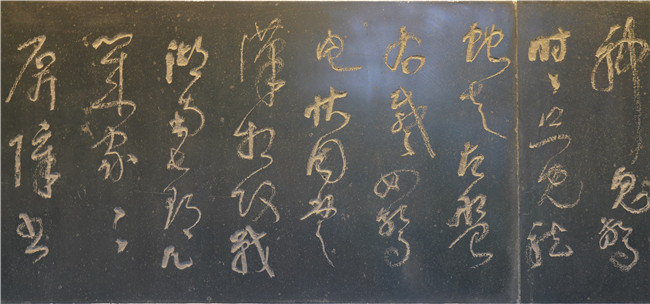 神鬼驚
時〻只見龍
蛇走左盤
右蹙如驚
電狀同楚
漢相攻戰
湖南七郡凡
幾家〻
屏障書